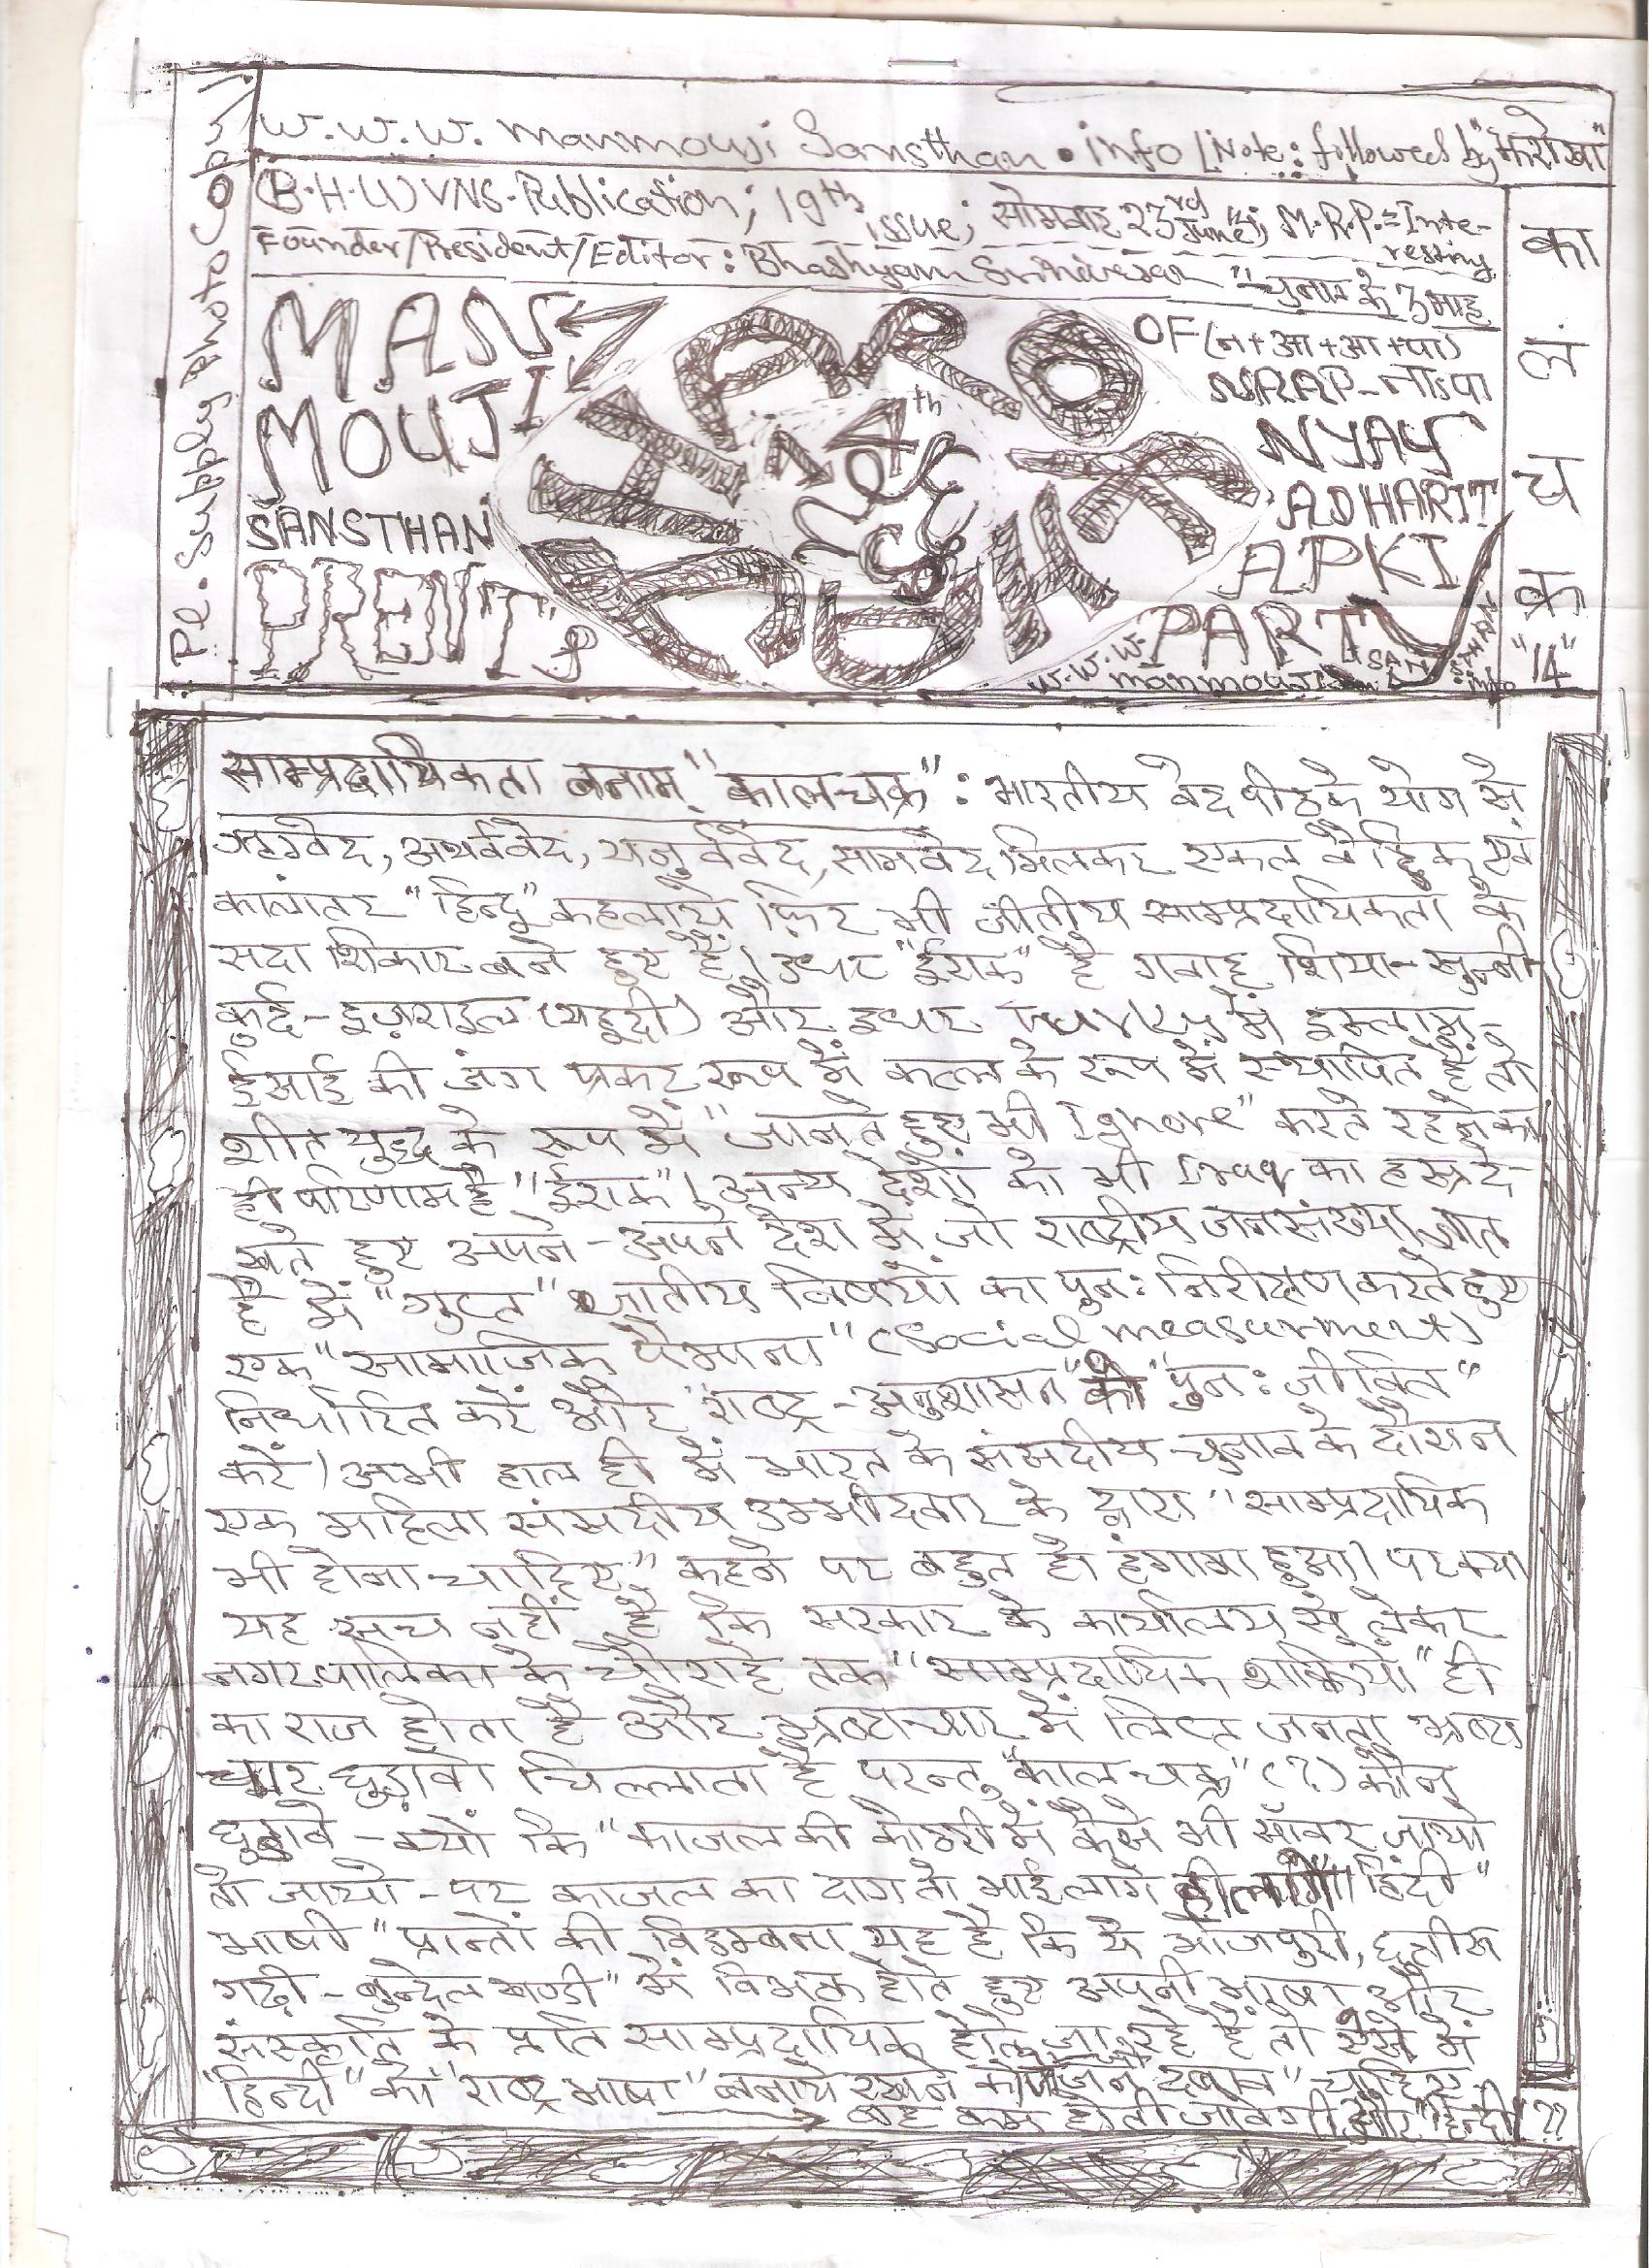 Pl. Supply Photo Copy
w.w.w. manmouji Sansthan . info [Note: followed by "भरोसा"
(B.H.U) VNS-Publication; 19th issue; सोमवार 23rd June; M.R.P.=Interesting
Founder/President/Editor: Bhashyam Srinivasan "चुनाव के 3 माह
MAN
MOUJI
SANSTHAN
PRENT'S
24th
OF (न+आ+आ+पा)
NAAP-नाआपा
NYAY
ADHARIT
APKI
PARTY
w.w.w. manmouji SANSTHAN info
का
ल
च
क्र
"14"
साम्प्रदायिकता बनाम् "कालचक्र": भारतीय वेद पीठके योग से
ऋग्वेद, अथर्ववेद, यजुर्ववेद, सामवेद मिलकर एकल वैदिक एवं
कालांतर "हिन्दु" कहलाये फ़िर भी जातीय साम्प्रदायिकता के
सदा शिकार बने हुए हैं। उधर "ईराक" है गवाह शिया-सुन्नी
कुर्द-इज़राइल (यहुदी) और इधर Turky में इस्लाम-
ईसाई की जंग प्रकट रूप में कत्ल के रूप में स्थापित है तो
शीत युद्ध के रूप में "जानते हुए भी Ignore" करते रहने का
ही परिणाम है "ईराक"! अन्य देशों को भी Iraq का हस्र दे-
खते हुए अपने-अपने देश में जो राष्ट्रीय जनसंख्या ज्ञात
है में "गुप्त" जातीय विषयों का पुनः निरीक्षण करते हुए
एक "सामाजिक पैमाना" (Social measurment)
निर्धारित करें और "राष्ट्र-अनुशासन" को "पुनः जीवित"
करें। अभी हाल ही में भारत के संसदीय चुनाव के दौरान
एक महिला संसदीय उम्मीदवार के द्वारा "साम्प्रदायिक
भी होना चाहिए" कहने पर बहुत ही हंगामा हुआ। पर क्या
यह सच नहीं है कि सरकार के कार्यालय से लेकर
नगरपालिका के चौराहे तक "साम्प्रदायिक शक्तियों" ही
का राज होता है और भ्रष्टाचार में लिप्त जनता भ्रष्टा
चार छुड़ावो चिल्लाता है परन्तु "कालचक्र" (?) कौन
छुड़ावे - क्यों कि "काजल की कोठरी में कैसे भी सँवर जायो
तो जायो - पर काजल का दाग तो भाई लागे ही लागे।" हिंदी"
भाषी "प्रान्तों की विडम्बना यह है कि ये भोजपुरी, छत्तीस
गढ़ी - बुन्देलखण्डी" में विभक्त होते हुए अपनी भाषा और
संस्कृति के प्रति साम्प्रदायिक होते जा रहे हैं तो ऐसे में
"हिन्दी" को "राष्ट्र भाषा" बनाये रखने को जन दबाव" चाहिए
वह कम होती जावेगी और "हिन्दी"??